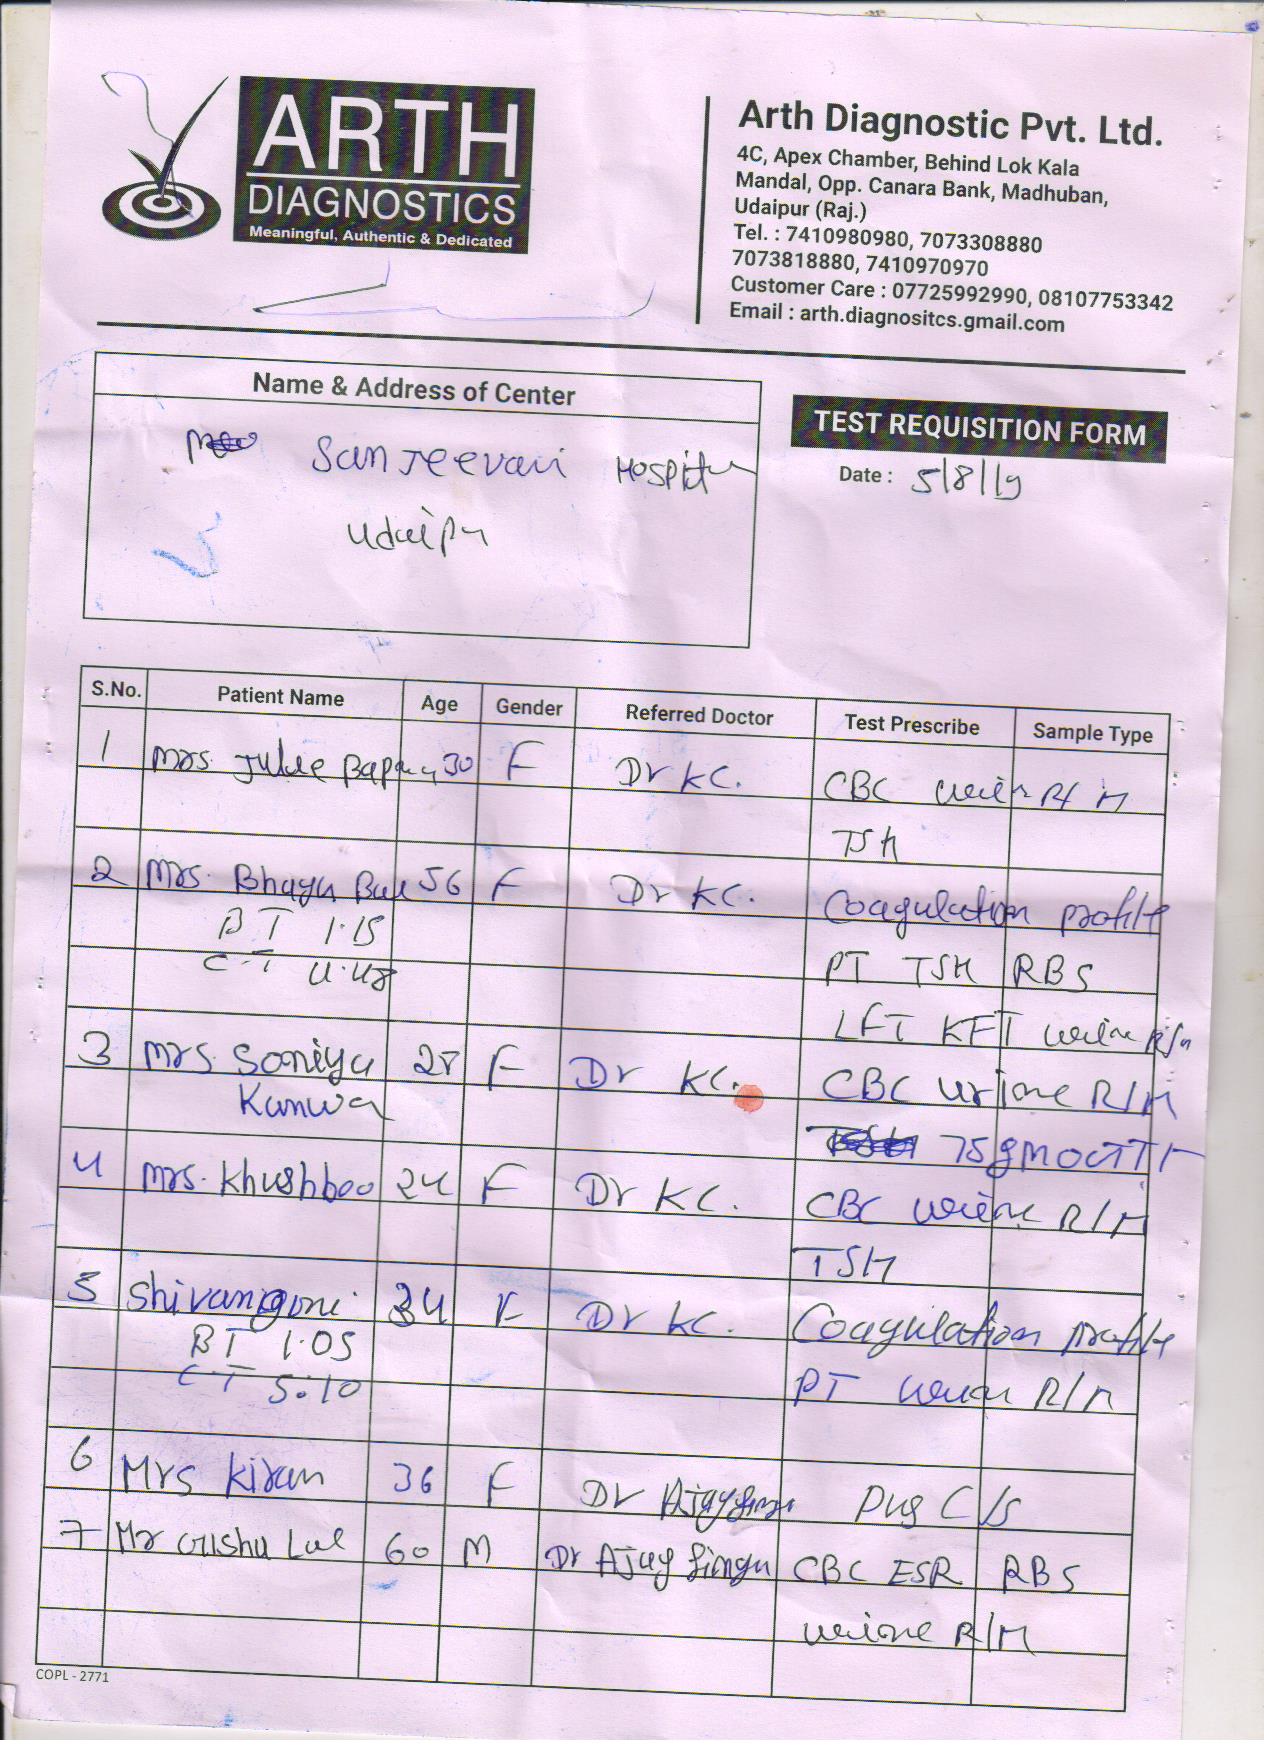 ARTH
DIAGNOSTICS
Meaningful, Authentic & Dedicated
Arth Diagnostic Pvt. Ltd.
4C, Apex Chamber, Behind Lok Kala
Mandal, Opp. Canara Bank, Madhuban,
Udaipur (Raj.)
Tel. : 7410980980, 7073308880
7073818880, 7410970970
Customer Care : 07725992990, 08107753342
Email : arth.diagnositcs.gmail.com
Name & Address of Center
TEST REQUISITION FORM
Sanjeevani Hospital
Date : 5/8/19
Udaipur
S.No. Patient Name Age Gender Referred Doctor Test Prescribe Sample Type
1 Mrs. Julie 30 F Dr KC. CBC urine R/M
TSH
2 Mrs. Bhagu Bai 56 F Dr KC. Coagulation profile
BT 1.15
C.T 4.48 PT TSH RBS
LFT KFT urine R/M
3 Mrs. Soniya 28 F Dr KC. CBC urine R/M
Kanwar
75gm OGTT
4 Mrs. Khushboo 24 F Dr KC. CBC urine R/M
TSH
5 34 F Dr KC. Coagulation profile
BT 1.05
CT 5.10 PT urine R/M
6 Mrs Kiran 36 F Dr Ajay Singh Pus C/S
7 Mr Lal 60 M Dr Ajay Singh CBC ESR RBS
urine R/M
COPL - 2771